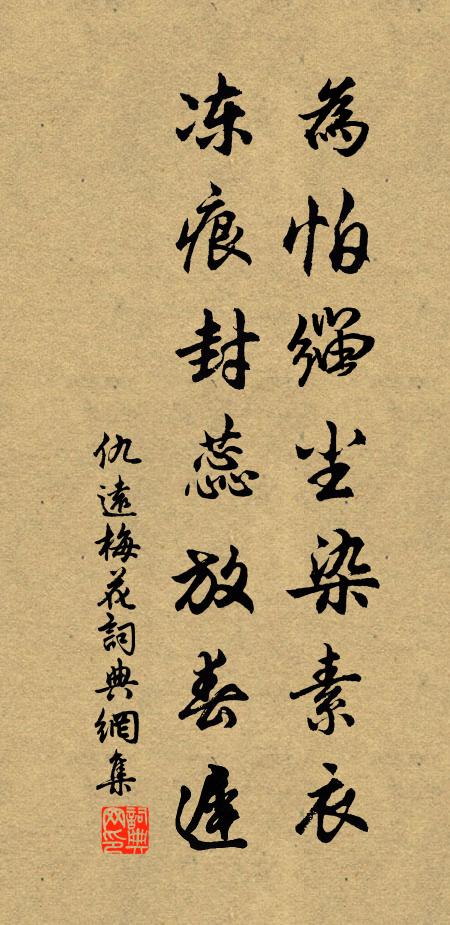 為怕緇尘染素衣
冻痕封蕊放春遲
仇遠梅花詞典網集
詞典网印